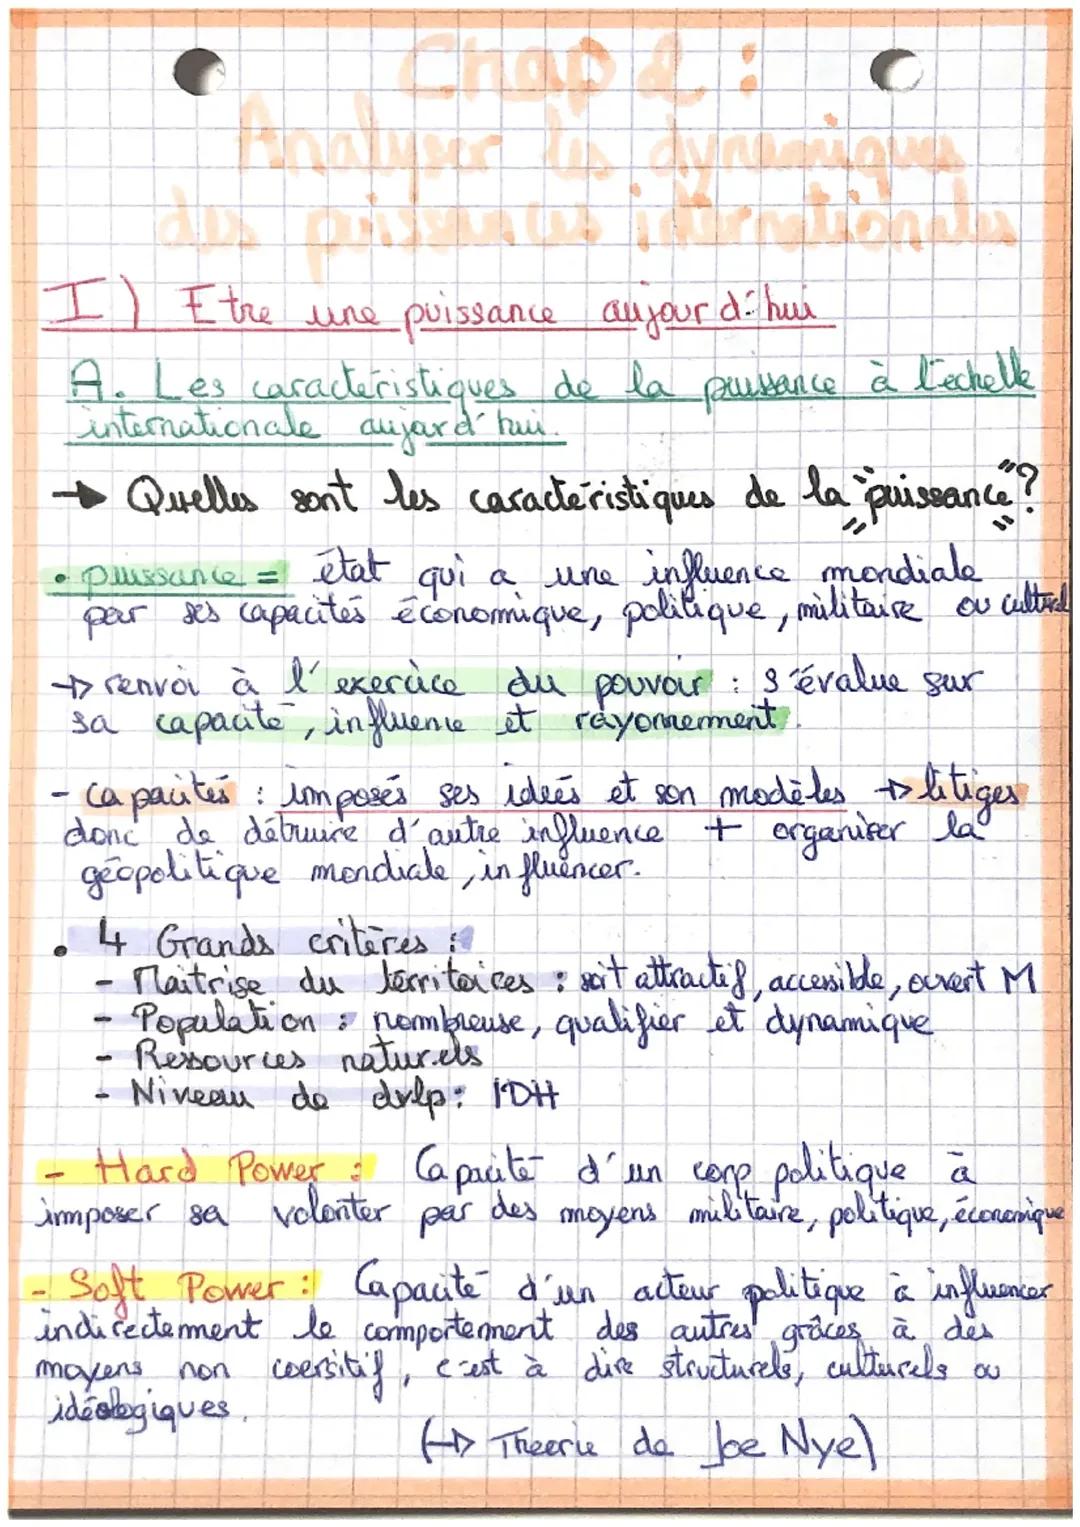 Chap 2 :
Analyser les dynamiques
des puissances internationales
I) Etre une puissance aujourd'hui
A. Les caractéristiques de la puissance à l'échelle
internationale aujard'hui.
→ Quelles sont les caractéristiques de la "puissance"?
• puissance = état qui a une influence mondiale
par ses capacités économique, politique, militaire ou culturel
→ renvoi à l'exercice du pouvoir : s'évalue sur
sa capacité, influence et rayonnement.
- capacités : imposés ses ideés et son modèles → litiges
donc de détruire d'autre influence + organiser la
géopolitique mondiale, influencer.
• 4 Grands critères :
- Maitrise du térritoires : soit attractif, accessible, ouvert M
- Population : nombreuse, qualifier et dynamique
- Ressources naturels
- Niveau de dvlp : IDH
- Hard Power : Capacité d'un corp politique à
imposer sa volonter par des moyens militaire, politique, économique
- Soft Power : Capacité d'un acteur politique à influencer
indirectement le comportement des autres grâces à des
moyens non coersitif, c'est à dire structurels, culturels ou
idéologiques.
(→ Theorie de Joe Nye)